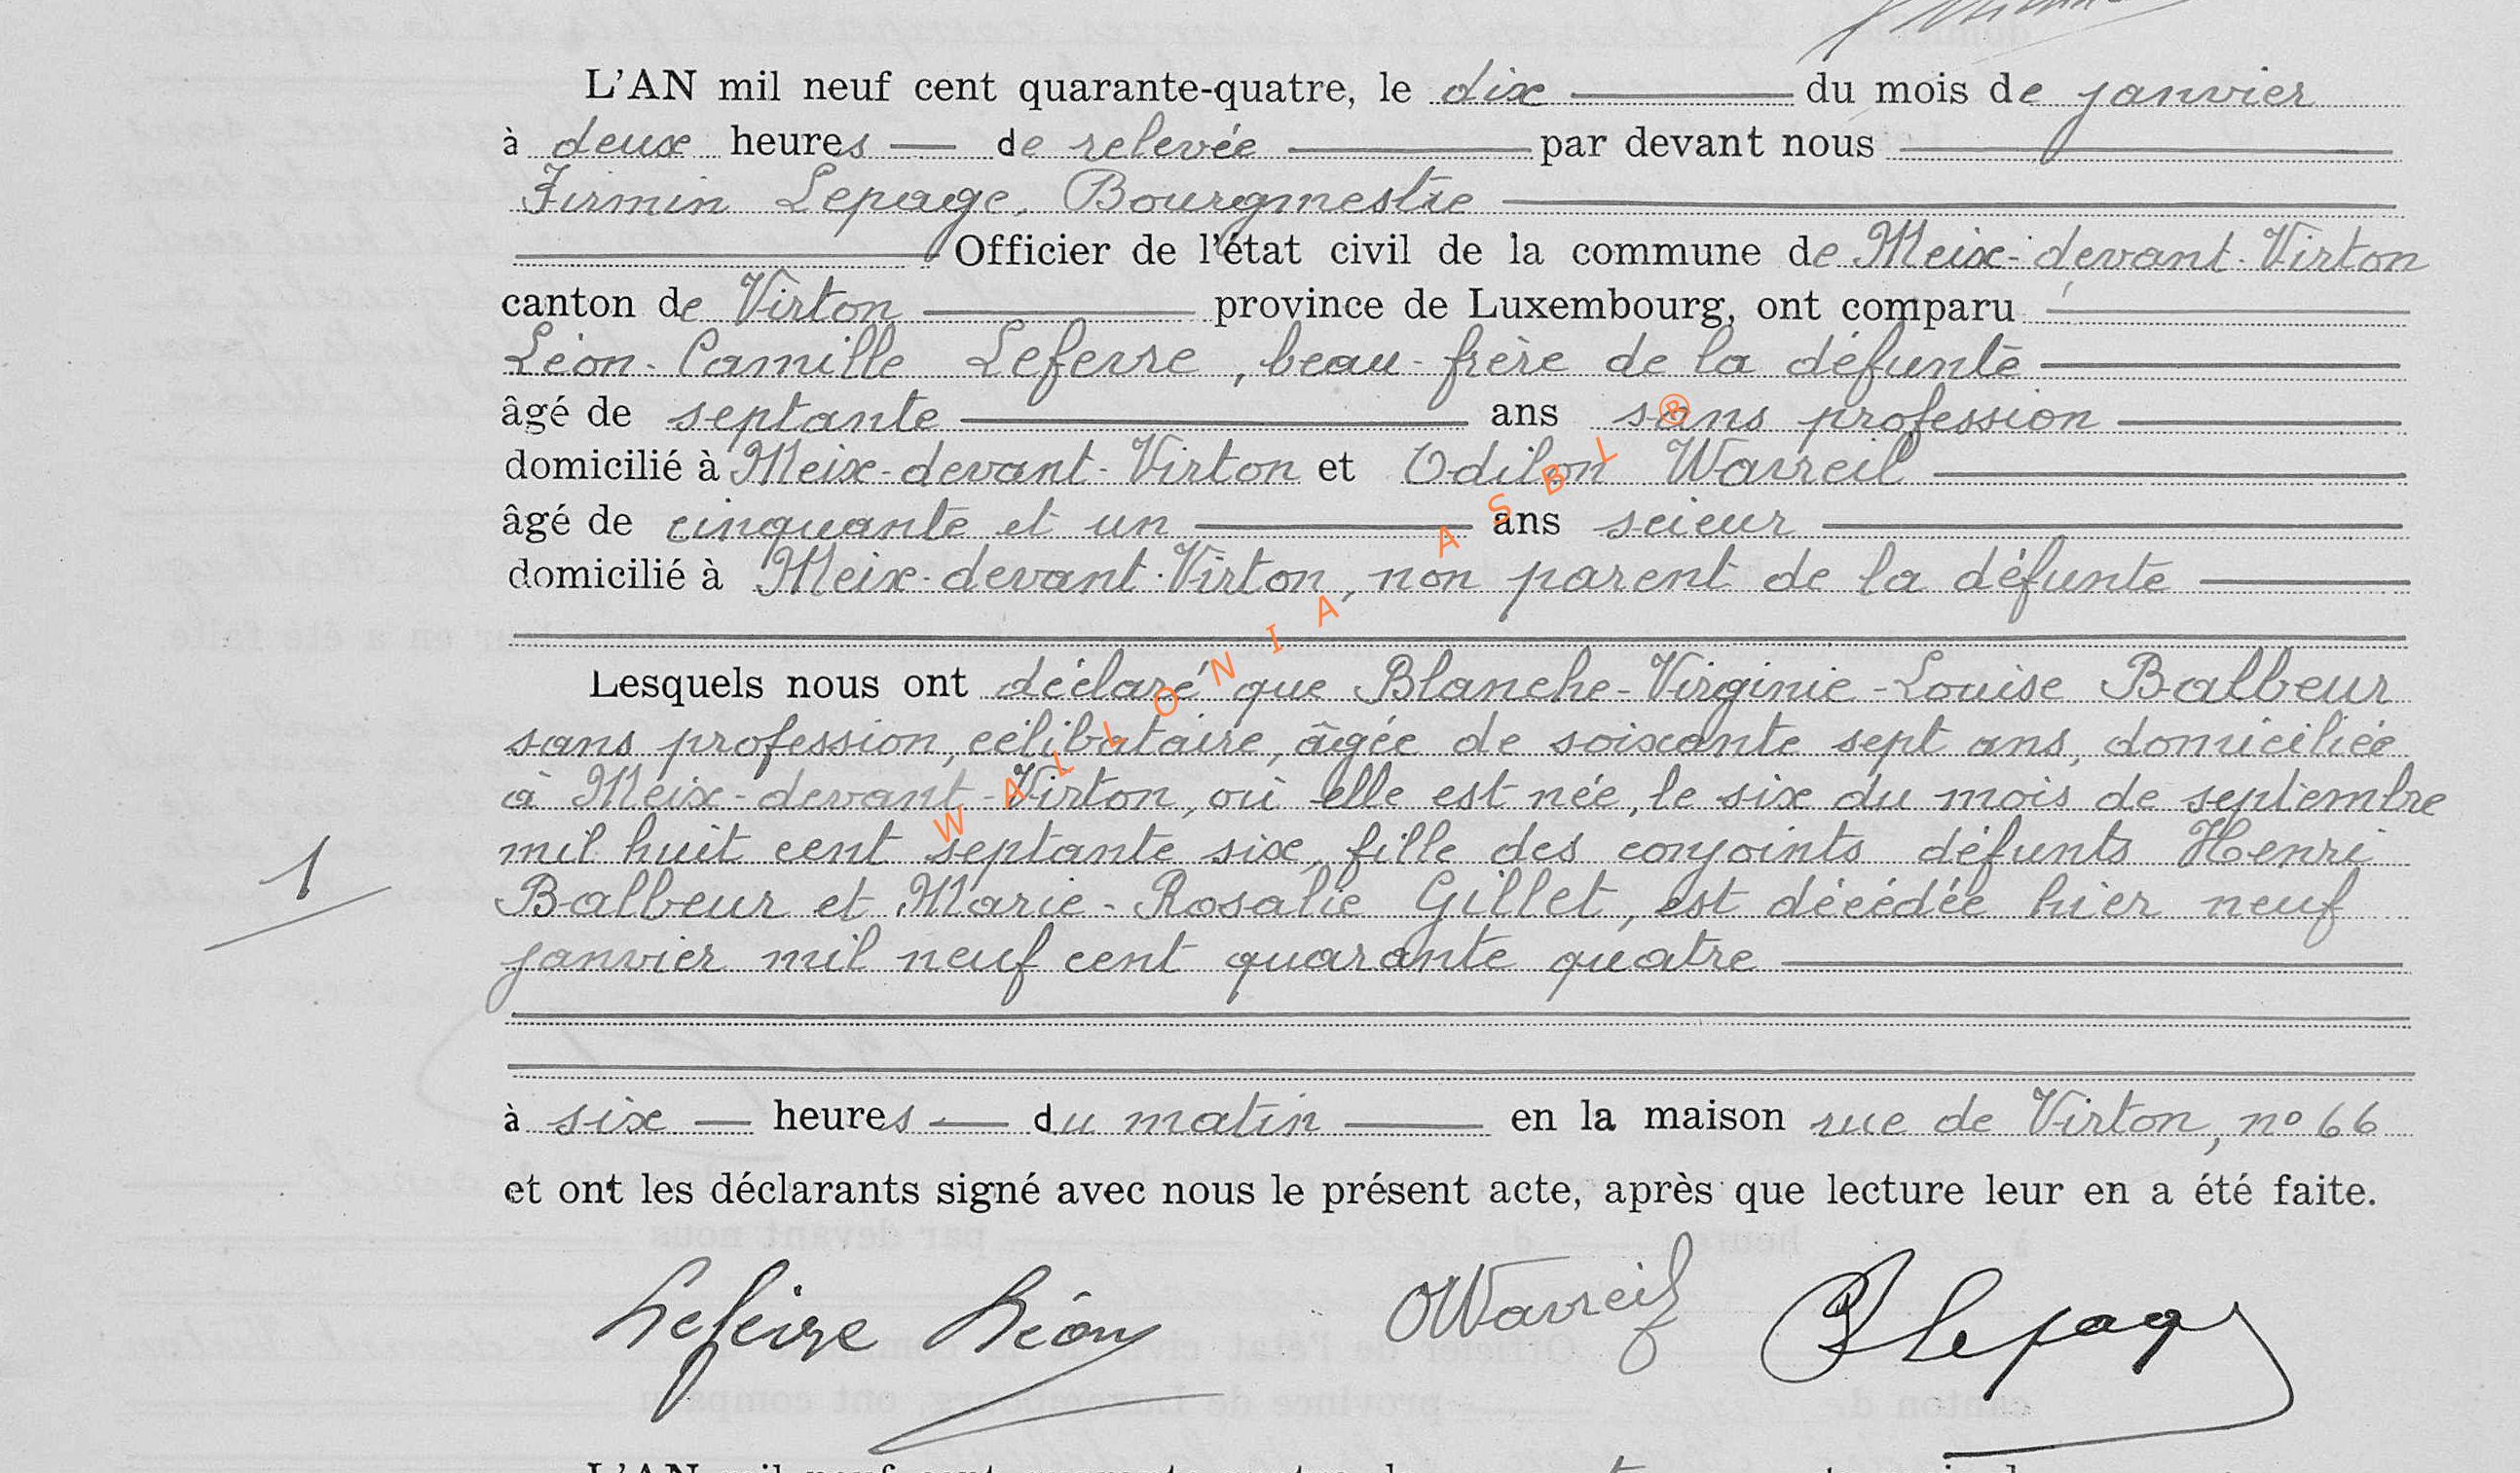 L'AN mil neuf cent quarante-quatre, le dix du mois de janvier
à deux heures de relevée par devant nous
Firmin Lepage, Bourgmestre
Officier de l'état civil de la commune de Meix-devant-Virton
canton de Virton province de Luxembourg, ont comparu
Léon-Camille Lefevre, beau-frère de la défunte
âgé de septante ans sans profession
domicilié à Meix-devant-Virton et Odilon Wavreil
âgé de cinquante et un ans scieur
domicilié à Meix-devant-Virton, non parent de la défunte
Lesquels nous ont déclaré que Blanche-Virginie-Louise Balbeur
sans profession, célibataire, âgée de soixante sept ans, domiciliée
à Meix-devant-Virton, où elle est née, le six du mois de septembre
mil huit cent septante six, fille des conjoints défunts Henri
1
Balbeur et Marie-Rosalie Gillet, est décédée hier neuf
janvier mil neuf cent quarante quatre
à six heures du matin en la maison rue de Virton, no 66
et ont les déclarants signé avec nous le présent acte, après que lecture leur en a été faite.
Lefevre Léon OWavreil Flepage
WALLONIA ASBL ®